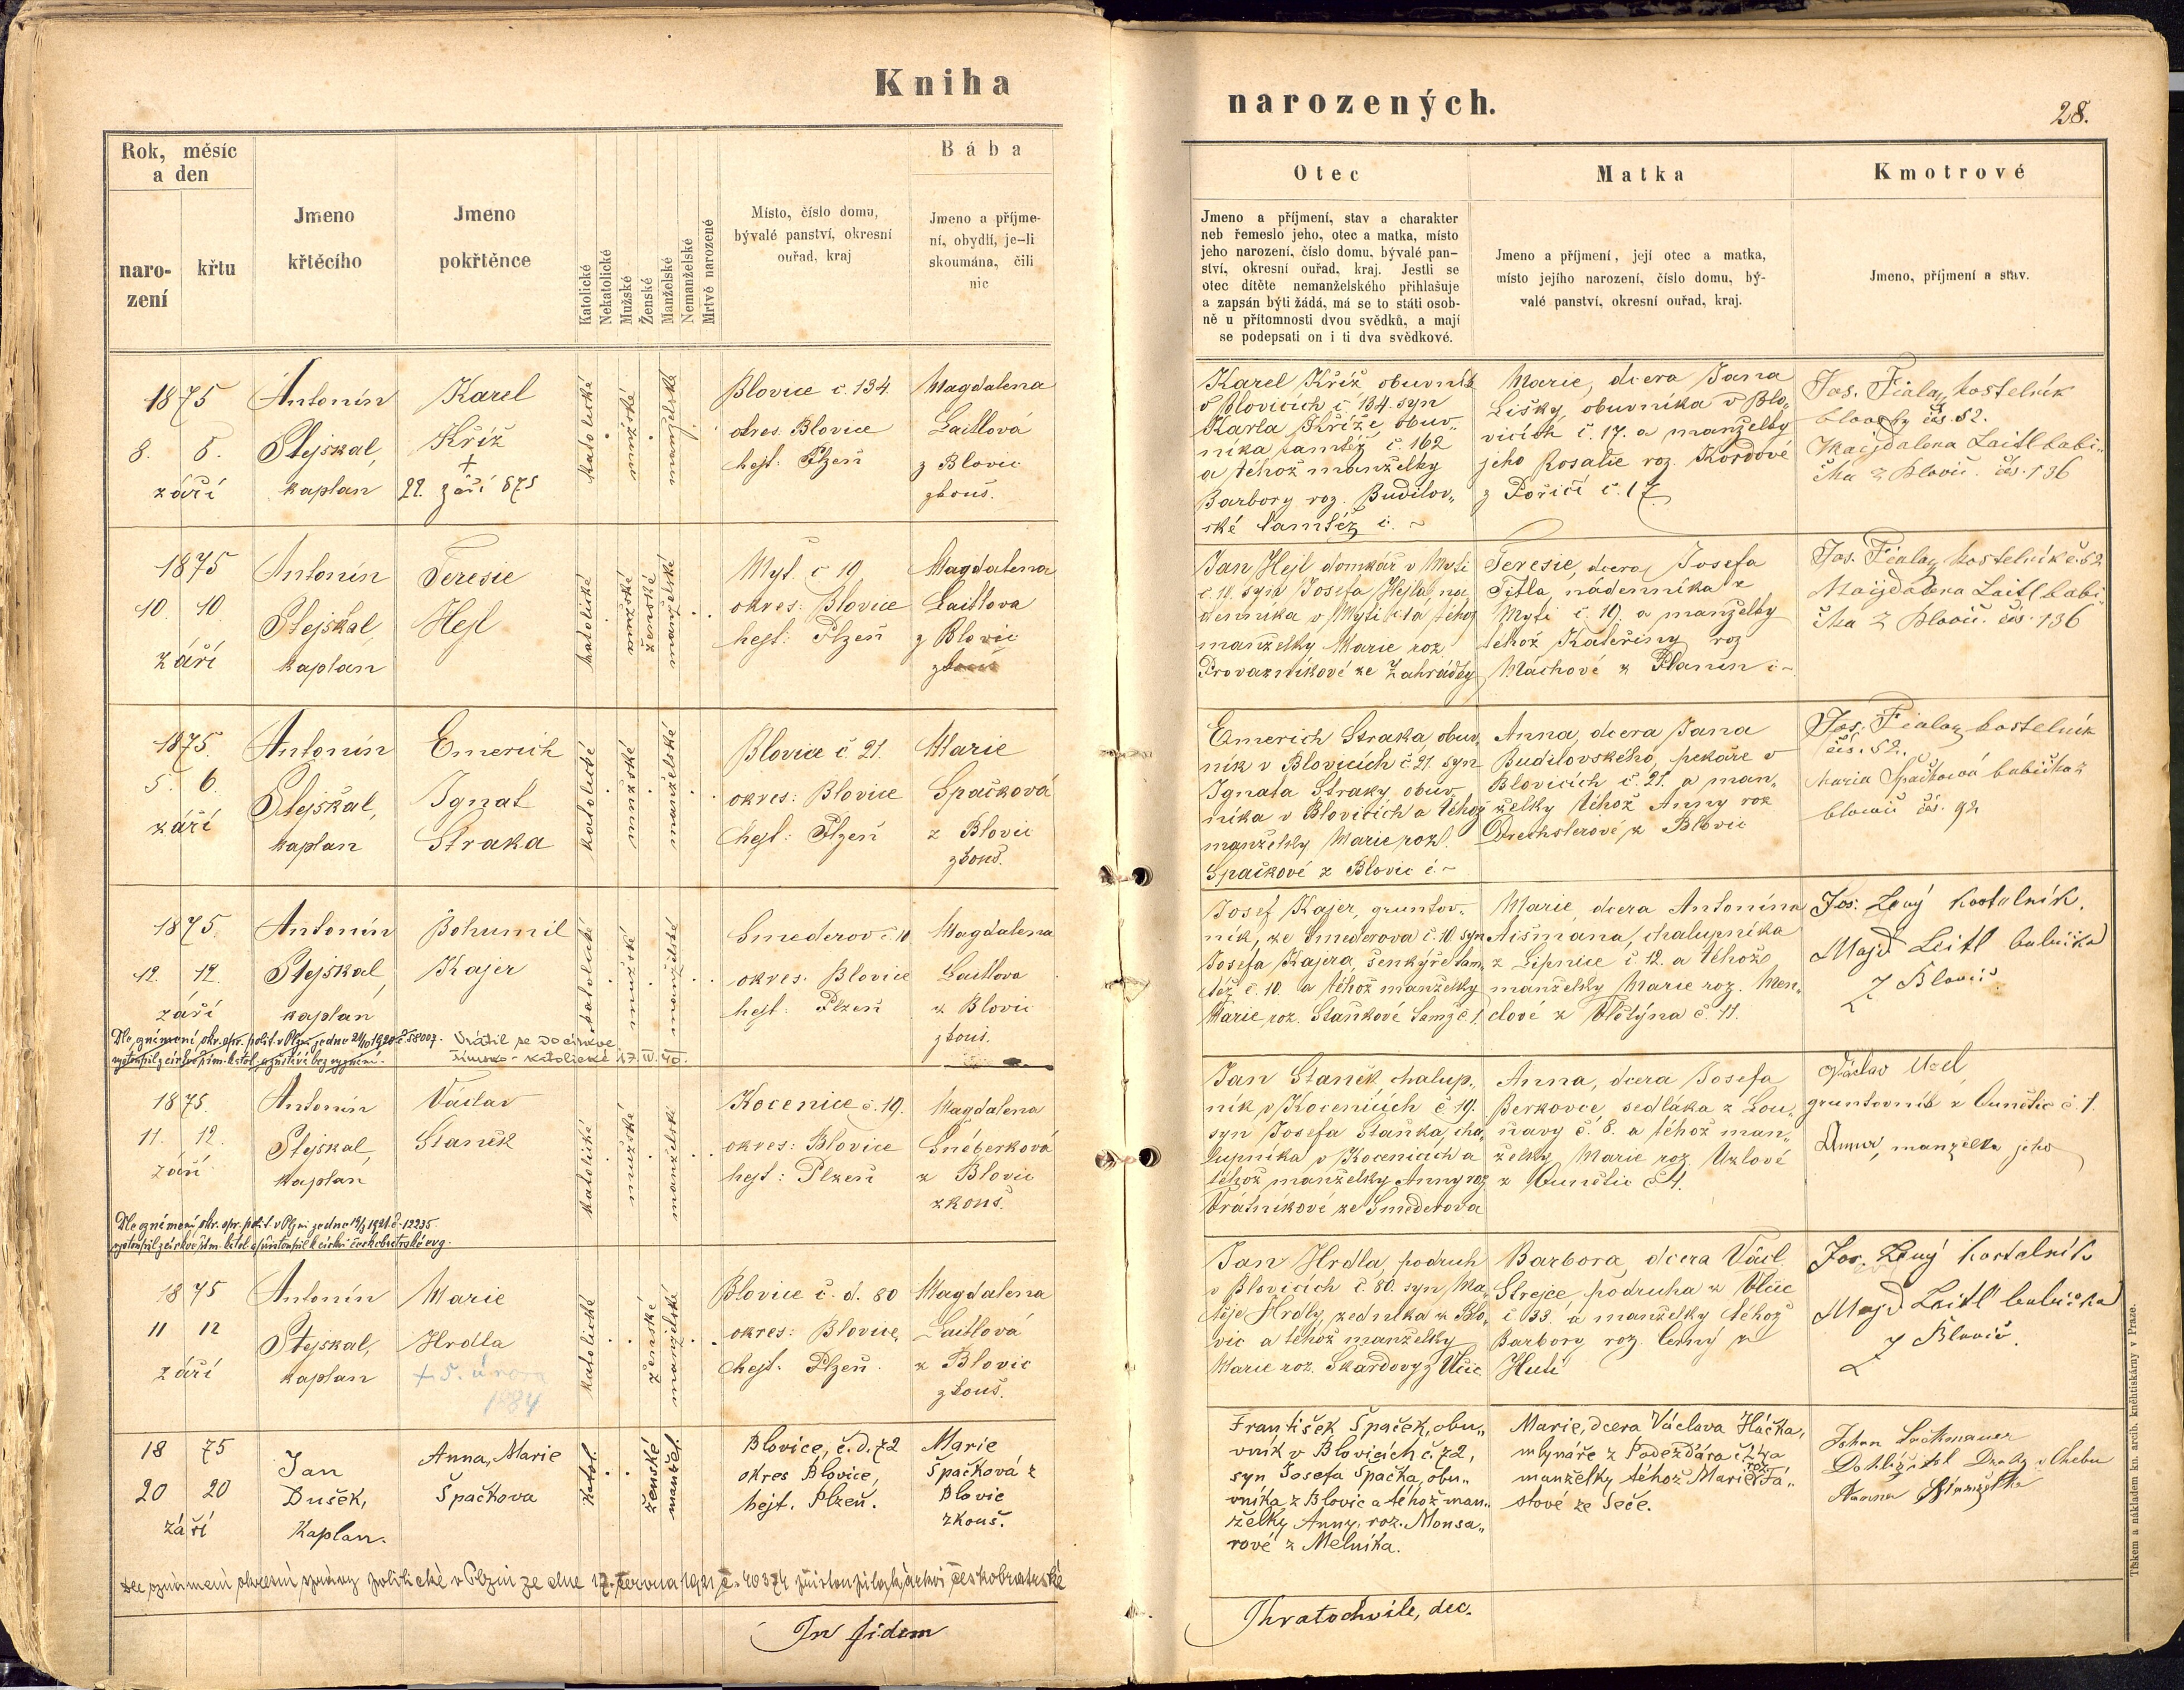 Kniha
narozených.
28.
Rok, měsíc
a den
naro-
zení
křtu
Jmeno
křtěcího
Jmeno
pokřtěnce
Katolické
Nekatolické
Mužské
Ženské
Manželské
Nemanželské
Mrtvě narozené
Místo, číslo domu,
bývalé panství, okresní
ouřad, kraj
Bába
Jmeno a příjme-
ní, obydlí, je-li
skoumána, čili
nic
Otec
Jmeno a příjmení, stav a charakter
neb řemeslo jeho, otec a matka, místo
jeho narození, číslo domu, bývalé pan-
ství, okresní ouřad, kraj. Jestli se
otec dítěte nemanželského přihlašuje
a zapsán býti žádá, má se to státi osob-
ně u přítomnosti dvou svědků, a mají
se podepsati on i ti dva svědkové.
Matka
Jmeno a příjmení, její otec a matka,
místo jejího narození, číslo domu, bý-
valé panství, okresní ouřad, kraj.
Kmotrové
Jmeno, příjmení a stav.
1875
8. 8.
září
Antonín
Stejskal,
kaplan
Karel
Kříž
+
29. září 875
katolické
mužské
manželské
Blovice č. 134
okres: Blovice
hejt: Plzeň
Magdalena
Laitlová
z Blovic
zkouš.
Karel Kříž obuvník
v Blovicích č. 134. syn
Karla Kříže obuv„
níka tamtéž č. 162
a téhož manželky
Barbory roz. Budilov„
ské tamtéž č. ~
Marie, dcera Jana
Lišky, obuvníka v Blo„
vicích č. 17. a manželky
jeho Rosalie roz. Kordové
z Poříčí č. 17
Jos. Fiala, kostelník
čís. 52.
Magdalena Laitl babi„
čka z Blovic. čís. 136
1875
10. 10
září
Antonín
Stejskal,
kaplan
Teresie
Hejl
katolické
mužské
ženské
manželské
Myť. č 19
okres: Blovice
hejt: Plzeň
Magdalena
Laitlova
z Blovic
zkouš
Jan Hejl domkář v Myti
č. 19. syn Josefa Hejla, ná
denníka v Myti č. 19 a téhož
manželky Marie roz
Provazníkové ze Zahrádky
Teresie, dcera Josefa
Títla, nádenníka z
Myti č. 19. a manželky
téhož Kateřiny roz
Máchové z Planin č ~
Jos. Fiala, kostelník č. 52
Magdalena Laitl babi
čka z Blovic. čís. 136
1875.
5. 6.
září
Antonín
Stejskal,
kaplan
Emerich
Ignat
Straka
katolické
mužské
manželské
Blovice č. 21.
okres: Blovice
hejt: Plzeň
Marie
Spačková
z Blovic
zkouš.
Emerich Straka obuv„
ník v Blovicích č. 21. syn
Ignata Straky obuv
níka v Blovicích a téhož
manželky Marie roz.
Spačkové z Blovic č. ~
Anna, dcera Jana
Budilovského, pekaře v
Blovicích č. 21. a man„
želky téhož Anny roz
Drechslerové z Blovic
Jos. Fiala, kostelník
čís. 52.
Maria Špačková babička z
čís. 92
1875
12. 12.
září
Antonín
Stejskal,
kaplan
Bohumil
Kajer
katolické
mužské
manželské
Smederov č. 10
okres: Blovice
hejt: Plzeň
Magdalena
Laitlova
z Blovic
zkouš.
Josef Kajer, gruntov„
ník, ze Smederova č. 10. syn
Josefa Kajera, šenkýře tam„
též č. 10. a téhož manželky
Marie roz. Staňkové tamž č. 1.
Marie, dcera Antonína
Aišmana, chalupníka
z Lipnice č. 12. a téhož
manželky Marie roz. Men„
clové z Vlčtýna č. 11.
Jos. Levý kostelník.
Majd Leitl babička
z Blovic
Dle oznámení okr. spr. polit. v Plzni ze dne 21/10 1920 č. 58007.
vystoupil z církve řím. katol. a zůstává bez vyznání.
Vrátil se do církve
římsko-katolické 17. III. 40.
1875.
11. 12.
září
Antonín
Stejskal,
kaplan
Václav
Staněk
katolické
mužské
manželské
Kocenice č. 19.
okres: Blovice
hejt: Plzeň
Magdalena
Snéberková
z Blovic
zkouš.
Jan Staněk, chalup„
ník v Kocenicích č. 19.
syn Josefa Staňka, cha„
lupníka v Kocenicích a
téhož manželky Anny roz
Vrátníkové ze Smederova
Anna, dcera Josefa
Berkovce, sedláka z Lou„
ňavy č. 8. a téhož man„
želky Marie roz. Uzlové
z Ounětic č 1.
Václav Uzel
gruntovník z Ounětic č. 1.
Anna, manželka jeho
Dle oznámení okr. spr. polit. v Plzni ze dne 19/3 1921. č. 12235.
vystoupil z církve řím. katol. a přistoupil k církvi českobratrské evg.
1875
11 12
září
Antonín
Stejskal,
kaplan
Marie
Hrdla
+ 5. února
1884
katolické
ženské
manželské
Blovice č. d. 80
okres: Blovice,
hejt. Plzeň.
Magdalena
Laitlová
z Blovic
zkouš.
Jan Hrdla, podruh
v Blovicích č. 80. syn Ma„
těje Hrdly, zedníka z Blo„
vic a téhož manželky
Marie roz. Skardovy z Vlčic
Barbora, dcera Václ.
Strejce, podruha z Vlčic
č 33. a manželky téhož
Barbory roz. Černý z
Hutí
Jos. Levý kostelník
Majd Leitl babička
z Blovic.
1875
20 20
září
Jan
Dušek,
Kaplan.
Anna, Marie
Špačkova
Katol.
ženské
manžel.
Blovice, č. d. 72
okres Blovice,
hejt. Plzeň.
Marie
Špačková z
Blovic
zkouš.
František Špaček, obu„
vník v Blovicích č. 72,
syn Josefa Špačka, obu„
vníka z Blovic a téhož man„
želky Anny, roz. Monsa„
rové z Mělníka.
Marie, dcera Václava Háčka,
mlynáře z Podežďára č.
manželky téhož Marie roz. Fá„
stové ze Seče.
Johan
v Chebu
Anna Manželka
Dle oznámení okresní správy politické v Plzni ze dne 17. června 1921 č. 40374 přistoupila k církvi českobratrské
In fidem
Jhratochvile, dec.
Tiskem a nákladem kn. arcib. kněhtiskárny v Praze.